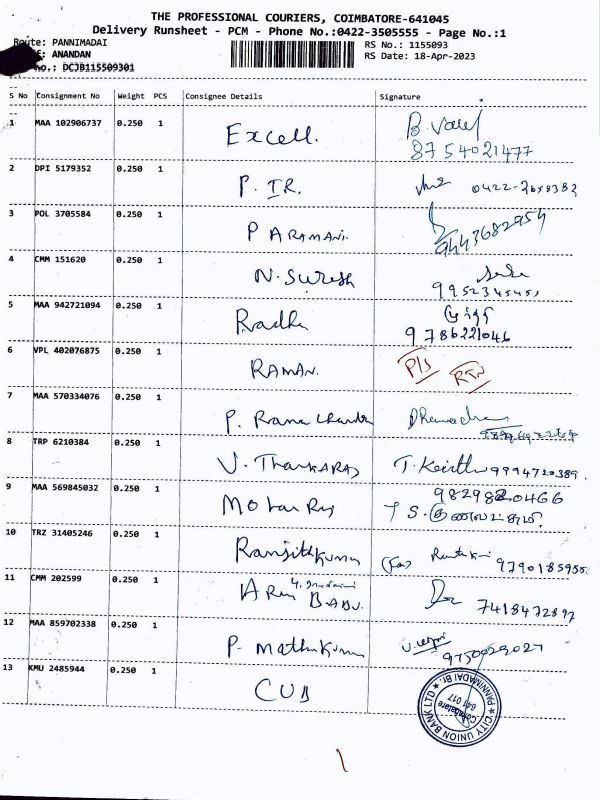 THE PROFESSIONAL COURIERS, COIMBATORE-641045
Delivery Runsheet - PCM - Phone No.:0422-3505555 - Page No.:1
Route: PANNIMADAI
RS No.: 1155093
: ANANDAN
RS Date: 18-Apr-2023
no.: DCJB115509301
S No Consignment No Weight PCS Consignee Details Signature
1 MAA 102906737 0.250 1 Excell.
8754021477
2 DPI 5179352 0.250 1 P. TR. 0422-2658382
3 POL 3705584 0.250 1 PARAMANI. 9443682954
4 CMM 151620 0.250 1 N. Suresh
9952345451
5 MAA 942721094 0.250 1 Radha
9786221046
6 VPL 402076875 0.250 1 RAMAN. P/S RTN
7 MAA 570334076 0.250 1 P. Rama
8 TRP 6210384 0.250 1 V. THANKARAJ T. Keirthi 9994720389.
9 MAA 569845032 0.250 1 Mohan Raj 9829820466
10 TRZ 31405246 0.250 1 Ranjithkumar
9790185955
11 CMM 202599 0.250 1 ARUN BABU. 7418472897
12 MAA 859702338 0.250 1 P. Mathukumar
9750029027
13 KMU 2485944 0.250 1 CUB
CITY UNION BANK LTD
PANNIMADAI Br.
Coimbatore
641 017